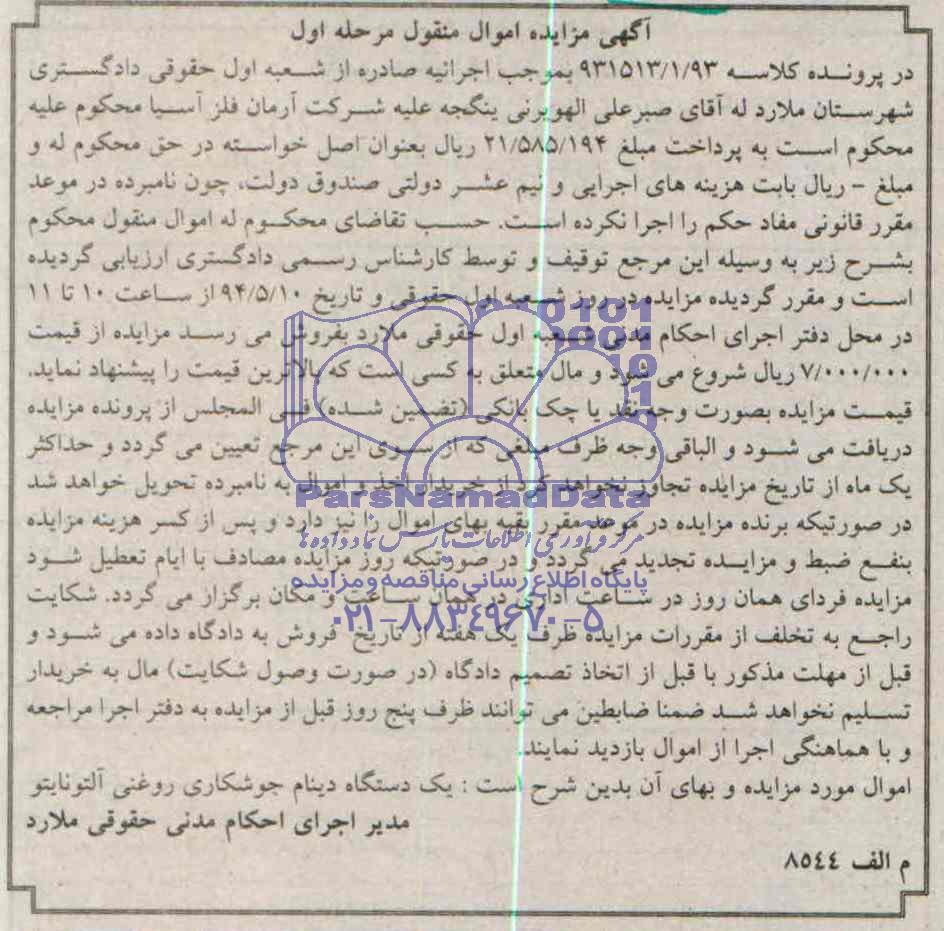 آگهی مزایده اموال منقول مرحله اول
در پرونده کلاسه ۹۳۱۵۱۳/۱/۹۳ بموجب اجرائیه صادره از شعبه اول حقوقی دادگستری
شهرستان ملارد له آقای صبرعلی الهویرنی ینگجه علیه شرکت آرمان فلز آسیا محکوم علیه
محکوم است به پرداخت مبلغ ۲۱/۵۸۵/۱۹۴ ریال بعنوان اصل خواسته در حق محکوم له و
مبلغ - ریال بابت هزینه های اجرایی و نیم عشر دولتی صندوق دولت، چون نامبرده در موعد
مقرر قانونی مفاد حکم را اجرا نکرده است. حسب تقاضای محکوم له اموال منقول محکوم
بشرح زیر به وسیله این مرجع توقیف و توسط کارشناس رسمی دادگستری ارزیابی گردیده
است و مقرر گردیده مزایده در روز شعبه اول حقوقی و تاریخ ۹۴/۵/۱۰ از ساعت ۱۰ تا ۱۱
در محل دفتر اجرای احکام مدنی شعبه اول حقوقی ملارد بفروش می رسد مزایده از قیمت
۷/۰۰۰/۰۰۰ ریال شروع می شود و مال متعلق به کسی است که بالاترین قیمت را پیشنهاد نماید.
قیمت مزایده بصورت وجه نقد یا چک بانکی (تضمین شده) فی المجلس از پرونده مزایده
دریافت می شود و الباقی وجه ظرف مبلغی که از سوی این مرجع تعیین می گردد و حداکثر
یک ماه از تاریخ مزایده تجاوز نخواهد کرد از خریدار اخذ و اموال به نامبرده تحویل خواهد شد
در صورتیکه برنده مزایده در موعد مقرر بقیه بهای اموال را نیز دارد و پس از کسر هزینه مزایده
بنفع ضبط و مزایده تجدید می گردد و در صورتیکه روز مزایده مصادف با ایام تعطیل شود
مزایده فردای همان روز در ساعت اداری در همان ساعت و مکان برگزار می گردد. شکایت
راجع به تخلف از مقررات مزایده ظرف یک هفته از تاریخ فروش به دادگاه داده می شود و
قبل از مهلت مذکور با قبل از اتخاذ تصمیم دادگاه (در صورت وصول شکایت) مال به خریدار
تسلیم نخواهد شد ضمنا ضابطین می توانند ظرف پنج روز قبل از مزایده به دفتر اجرا مراجعه
و با هماهنگی اجرا از اموال بازدید نمایند.
اموال مورد مزایده و بهای آن بدین شرح است : یک دستگاه دینام جوشکاری روغنی آلتونایتو
مدیر اجرای احکام مدنی حقوقی ملارد
م الف ۸۵٤٤
ParsNamadData
مرکز فرآوری اطلاعات پارس نماد داده ها
پایگاه اطلاع رسانی مناقصه و مزایده
۰۲۱-۸۸۳٤۹٦۷۰-۵